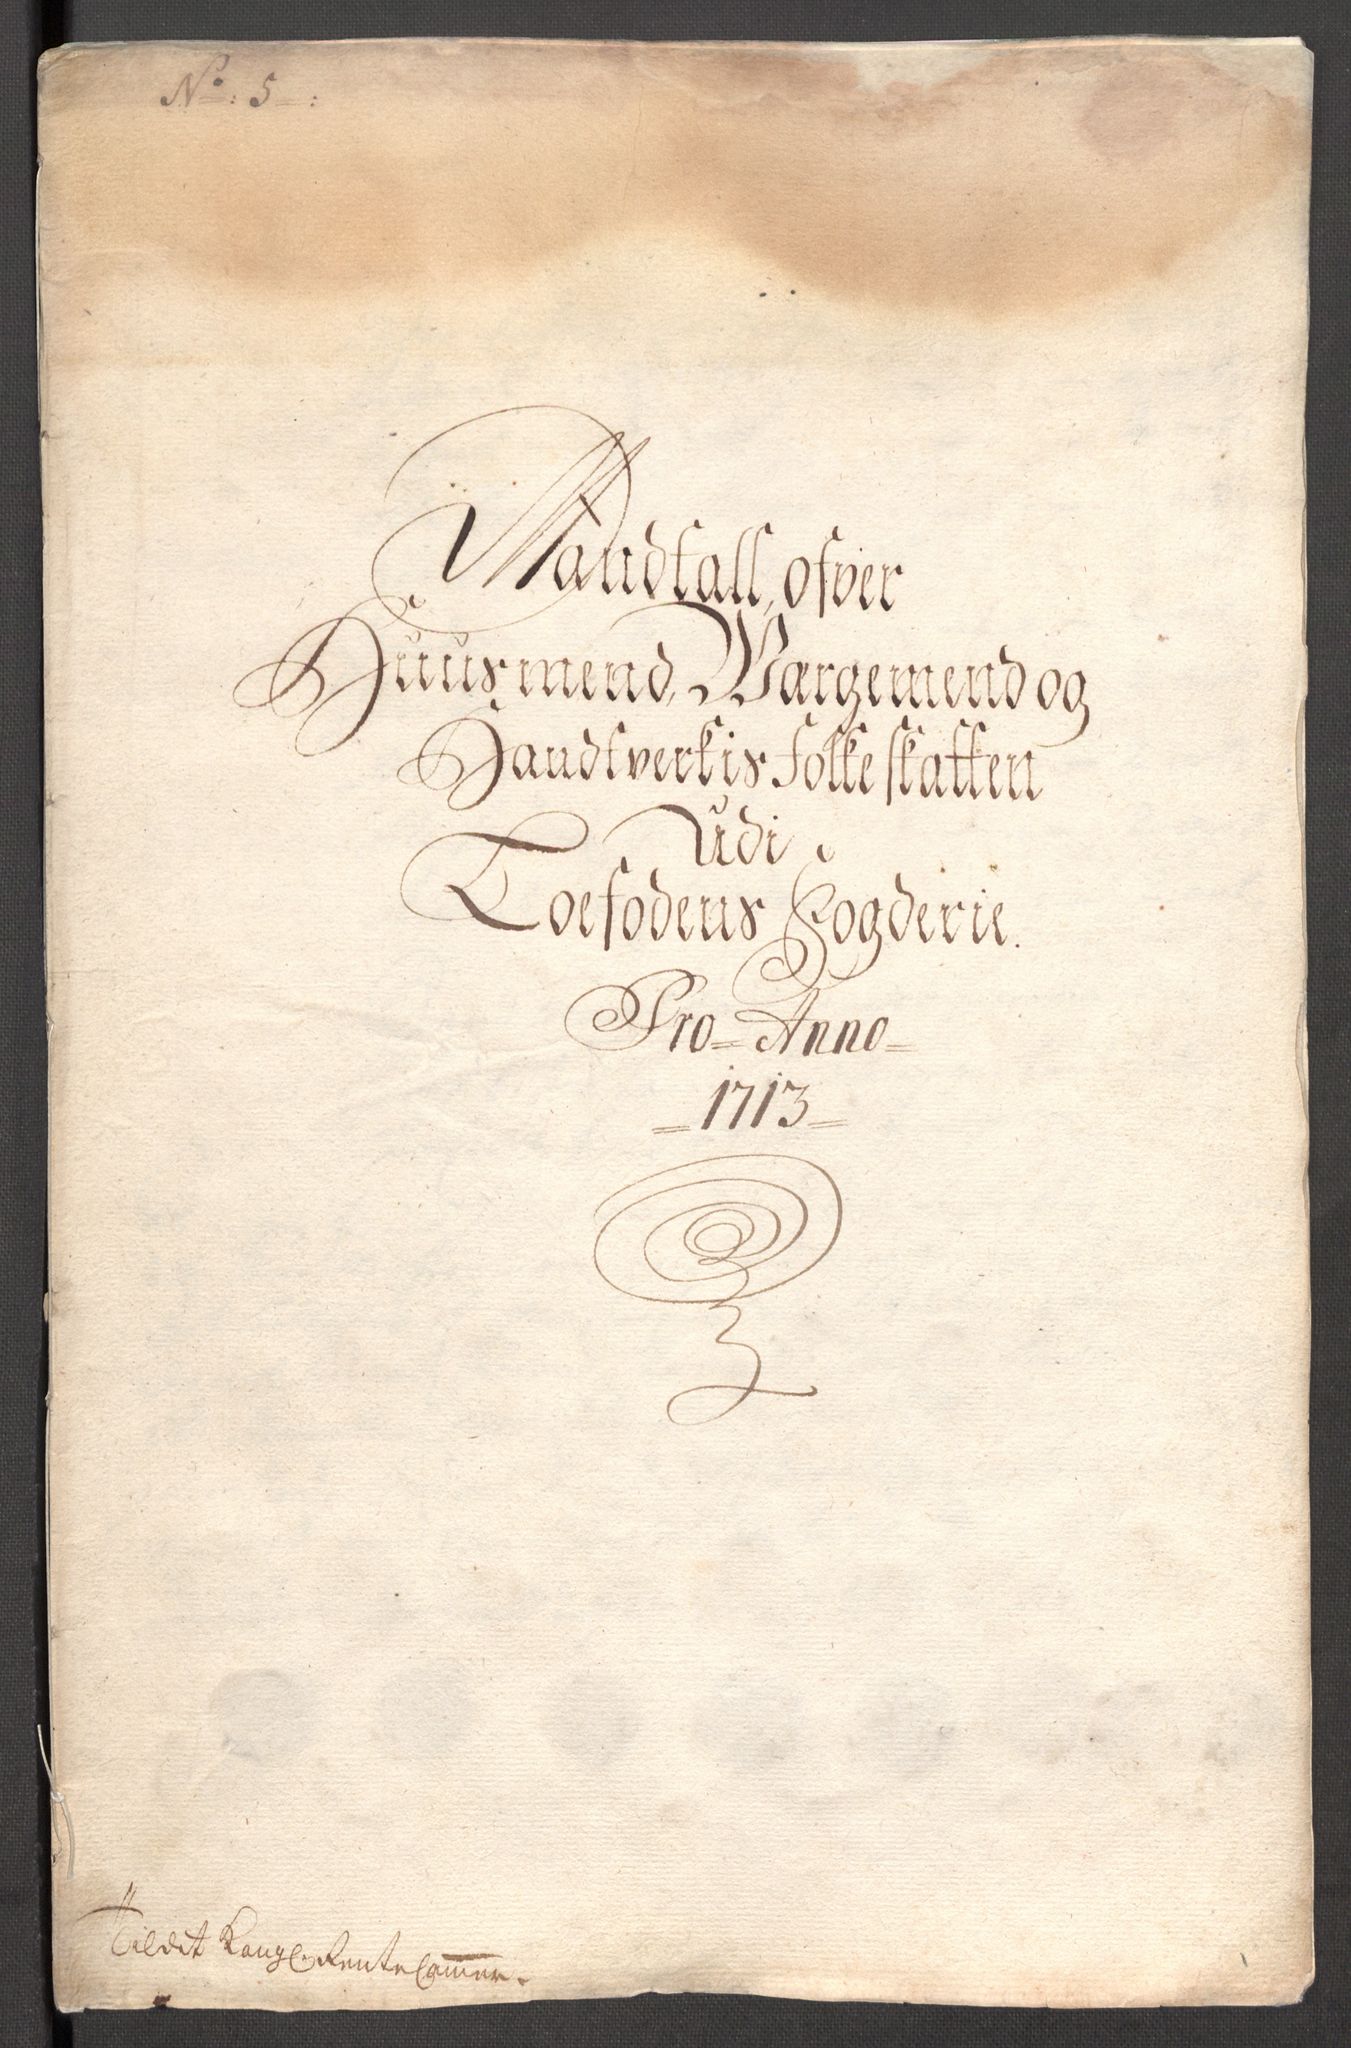 No: 5:
Mandtall, ofver
Huusmend, Wargemend og
Handtverkis folke skatten
Udi
Toesodens Fogderie.
Pro Anno
1713
Til det Kongl. Rente Cammer.